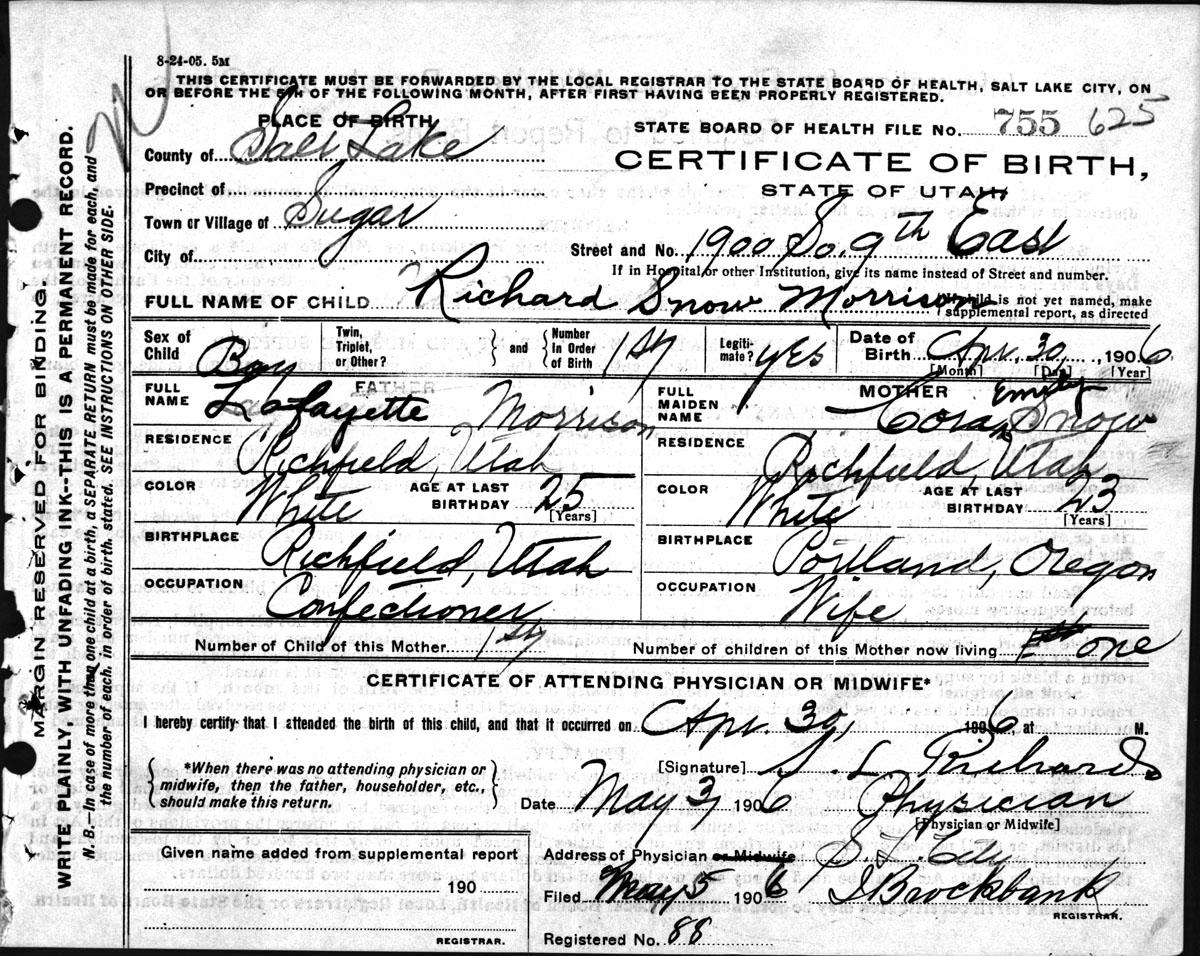 8-24-05. 5M
THIS CERTIFICATE MUST BE FORWARDED BY THE LOCAL REGISTRAR TO THE STATE BOARD OF HEALTH, SALT LAKE CITY, ON
OR BEFORE THE 5TH OF THE FOLLOWING MONTH, AFTER FIRST HAVING BEEN PROPERLY REGISTERED.
PLACE OF BIRTH
STATE BOARD OF HEALTH FILE No. 755 625
County of Salt Lake
CERTIFICATE OF BIRTH,
STATE OF UTAH
Precinct of Sugar
Town or Village of
City of
Street and No. 1900 So. 9th East
If in Hospital or other Institution, give its name instead of Street and number.
FULL NAME OF CHILD Richard Snow Morrison
If child is not yet named, make
supplemental report, as directed
Sex of Child Boy
Twin, Triplet, or Other? } and { Number in Order of Birth 1st
Legiti-mate? yes
Date of Birth Apr. 30, 1906
[Month] [Day] [Year]
FATHER
FULL NAME Lafayette Morrison
RESIDENCE Richfield, Utah
COLOR White AGE AT LAST BIRTHDAY 25
[Years]
BIRTHPLACE Richfield, Utah
OCCUPATION Confectioner
MOTHER
FULL MAIDEN NAME Cora Emily Snow
RESIDENCE Richfield, Utah
COLOR White AGE AT LAST BIRTHDAY 23
[Years]
BIRTHPLACE Portland, Oregon
OCCUPATION Wife
Number of Child of this Mother 1st Number of children of this Mother now living one
CERTIFICATE OF ATTENDING PHYSICIAN OR MIDWIFE*
I hereby certify that I attended the birth of this child, and that it occurred on Apr. 30, 1906, at M.
*When there was no attending physician or
midwife, then the father, householder, etc.,
should make this return.
[Signature] S. L. Richards
Date May 3, 1906 Physician
[Physician or Midwife]
Given name added from supplemental report
190
REGISTRAR.
Address of Physician or Midwife S. L. City
Filed May 5 1906 I Brockbank
REGISTRAR.
Registered No. 88
MARGIN RESERVED FOR BINDING.
WRITE PLAINLY, WITH UNFADING INK--THIS IS A PERMANENT RECORD.
N. B.—In case of more than one child at a birth, a SEPARATE RETURN must be made for each, and
the number of each, in order of birth, stated. SEE INSTRUCTIONS ON OTHER SIDE.